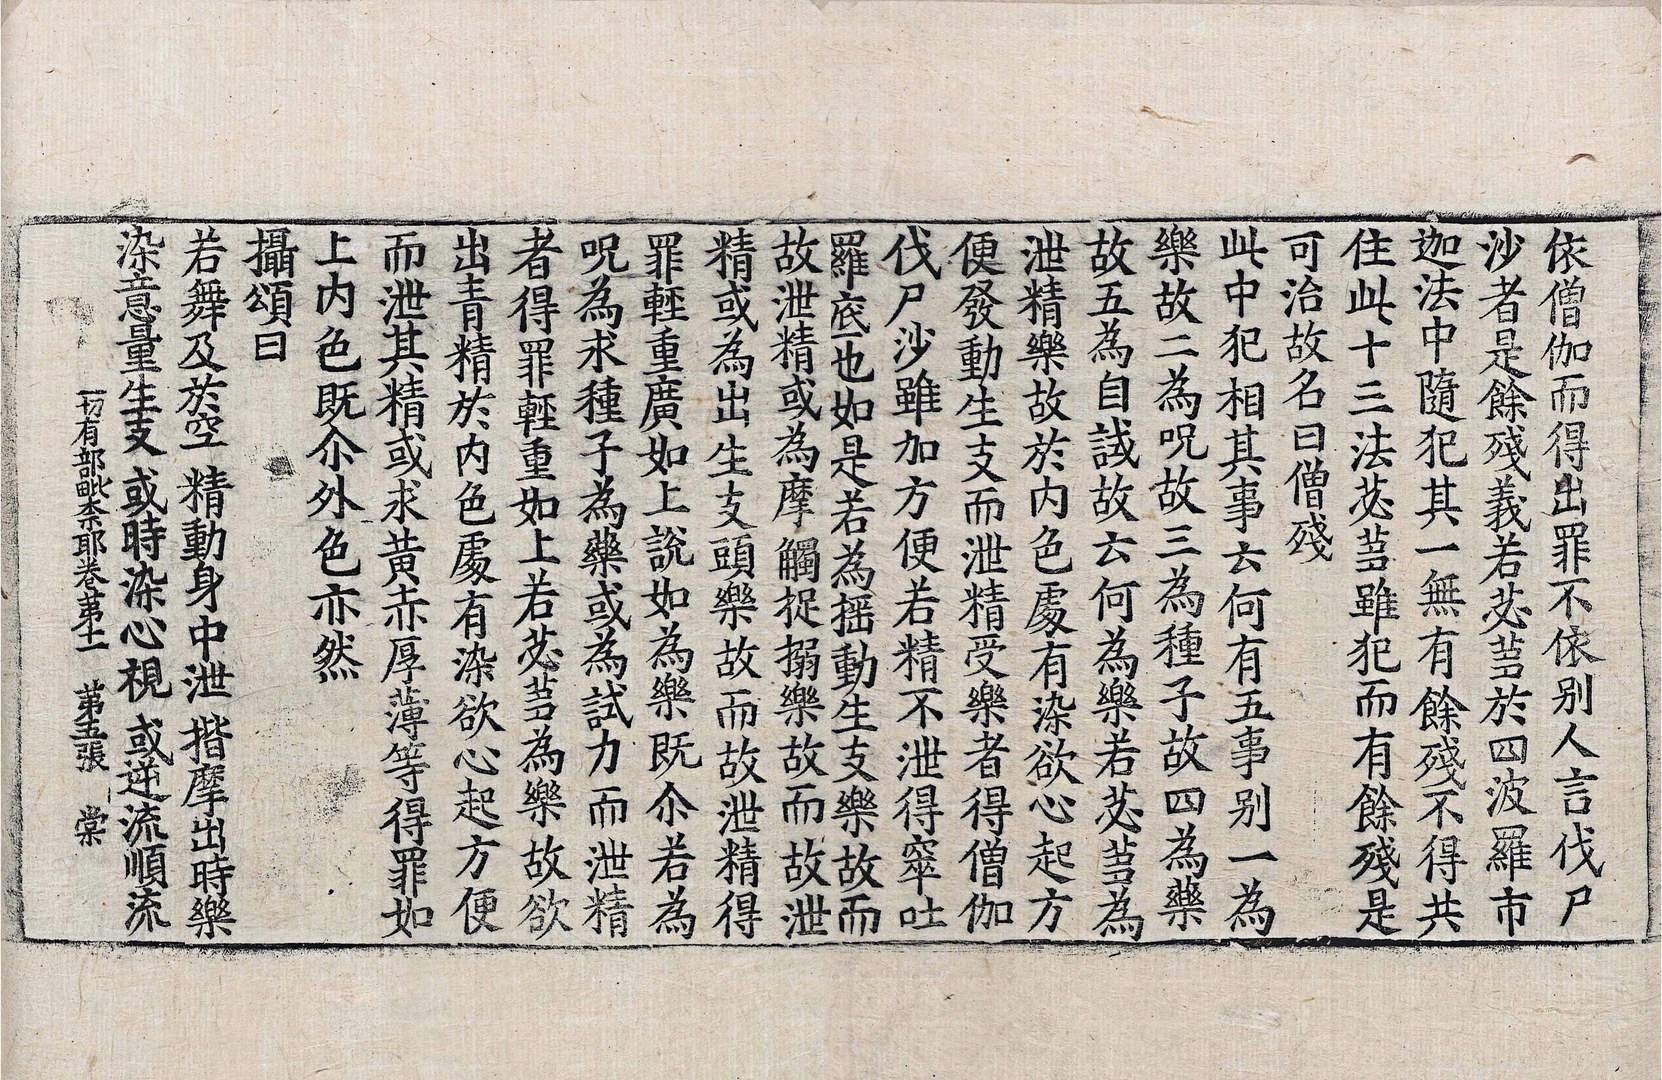 依僧伽而得出罪不依別人言伐尸
沙者是餘殘義若苾芻於四波羅市
迦法中隨犯其一無有餘殘不得共
住此十三法苾芻雖犯而有餘殘是
可治故名曰僧殘
此中犯相其事云何有五事別一為
樂故二為呪故三為種子故四為藥
故五為自試故云何為樂若苾芻為
泄精樂故於內色處有染欲心起方
便發動生支而泄精受樂者得僧伽
伐尸沙雖加方便若精不泄得窣吐
羅底也如是若為搖動生支樂故而
故泄精或為摩觸捉搦樂故而故泄
精或為出生支頭樂故而故泄精得
罪輕重廣如上說如為樂既尒若為
呪為求種子為藥或為試力而泄精
者得罪輕重如上若苾芻為樂故欲
出青精於內色處有染欲心起方便
而泄其精或求黃赤厚薄等得罪如
上內色既尒外色亦然
攝頌曰
若舞及於空 精動身中泄 揩摩出時樂
染意量生支 或時染心視 或逆流順流
一切有部毗柰耶卷第十一 第五張 棠